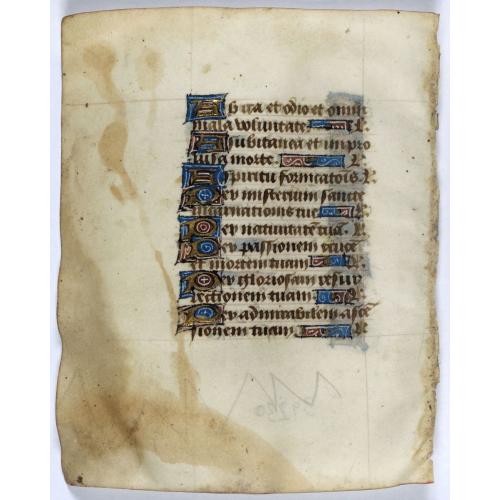 Ab ira et odio et omni
mala voluntate. L.
A subitanea et impro
visa morte. L.
A spiritu fornicatois. L.
Per misterium sancte
incarnationis tue L.
Per nativitatē tuā. L.
Per passionem cruce
et mortem tuam L.
Per gloriosam resur
rectionem tuam L.
Per admirabilem ascē
sionem tuam L.